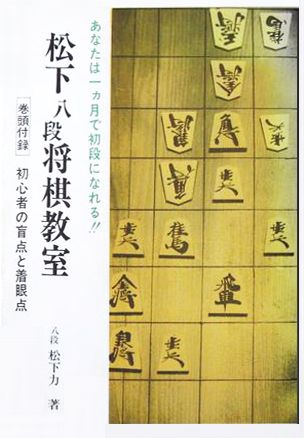 あなたは一ヵ月で初段になれる!!
松下八段将棋教室
［巻頭付録］ 初心者の盲点と着眼点
八段 松下力 著